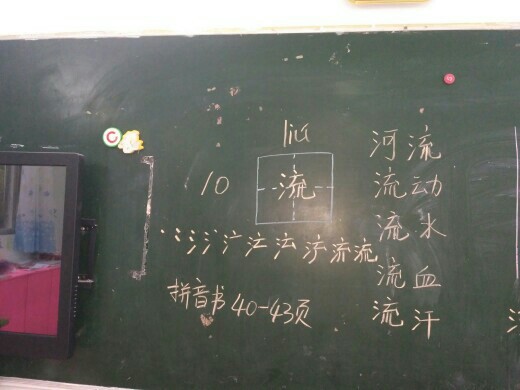 liú
10
流
丶 冫 氵 氵 汒 浐 流
拼音书40-43页
河流
流动
流水
流血
流汗